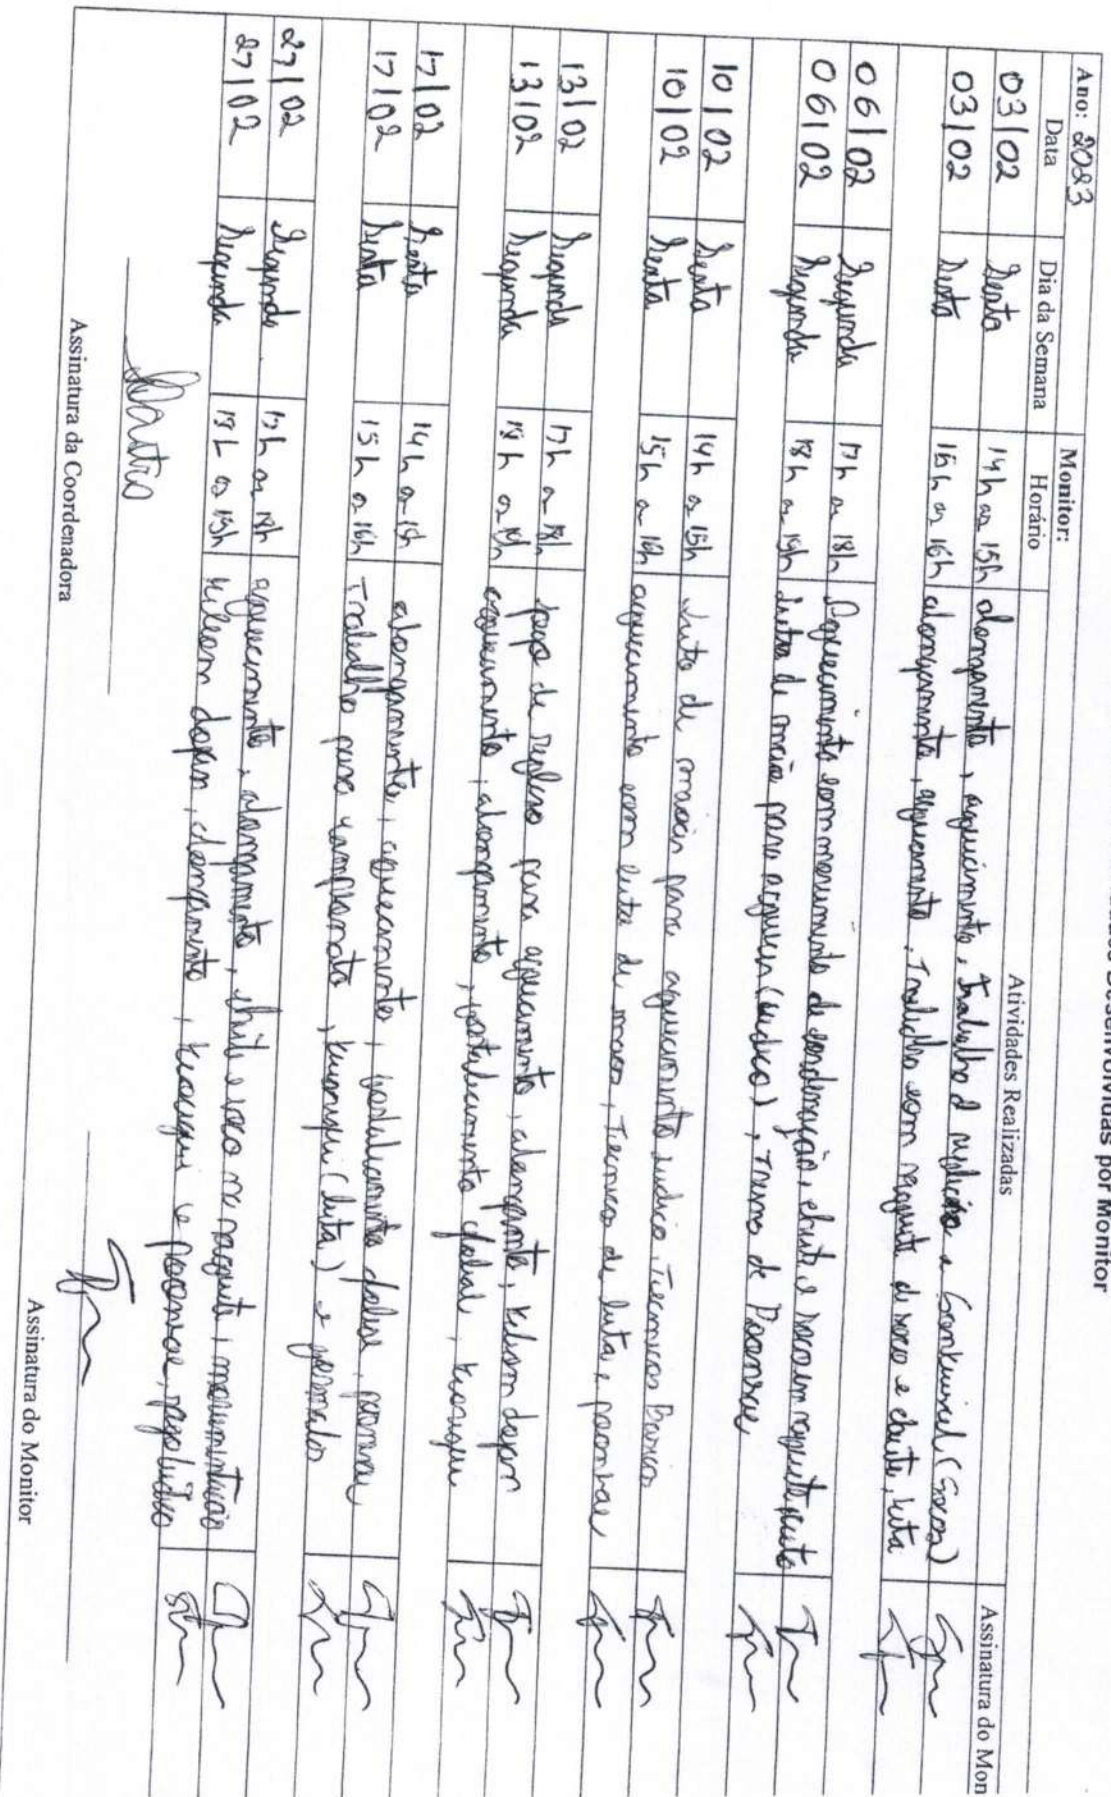 Desenvolvidas por Monitor
Ano: 2023 Monitor:
Data Dia da Semana Horário Atividades Realizadas Assinatura do Mon
03/02 Sexta 14h as 15h alongamento, aquecimento, Trabalho d (Socos)
03/02 Sexta 15h as 16h alongamento, aquecimento, Trabalho com raquete de soco e chute, luta
06/02 Segunda 17h as 18h Aquecimento com movimento de coordenação, chute e soco em raquete, luta
06/02 Segunda 18h as 19h luta de para aquecer (ludico), Treino de Poomsae
10/02 Sexta 14h as 15h luta de para aquecimento ludico, Tecnicas Basicas
10/02 Sexta 15h a 16h aquecimento com luta de Tecnicas de luta e poomsae
13/02 Segunda 17h as 18h jogo de reflexo para aquecimento, alongamento,
13/02 Segunda 18h as 19h aquecimento, alongamento, fortalecimento global, kiorugui
17/02 Sexta 14h as 15h alongamento, aquecimento, fortalecimento
17/02 Sexta 15h as 16h Trabalho para campeonato, kiorugui (luta) e
27/02 Segunda 17h as 18h aquecimento, alongamento, chute e soco na raquete, movimentação
27/02 Segunda 18h as 19h alongamento, kiorugui e poomsae, jogo lúdico
Assinatura da Coordenadora
Assinatura do Monitor